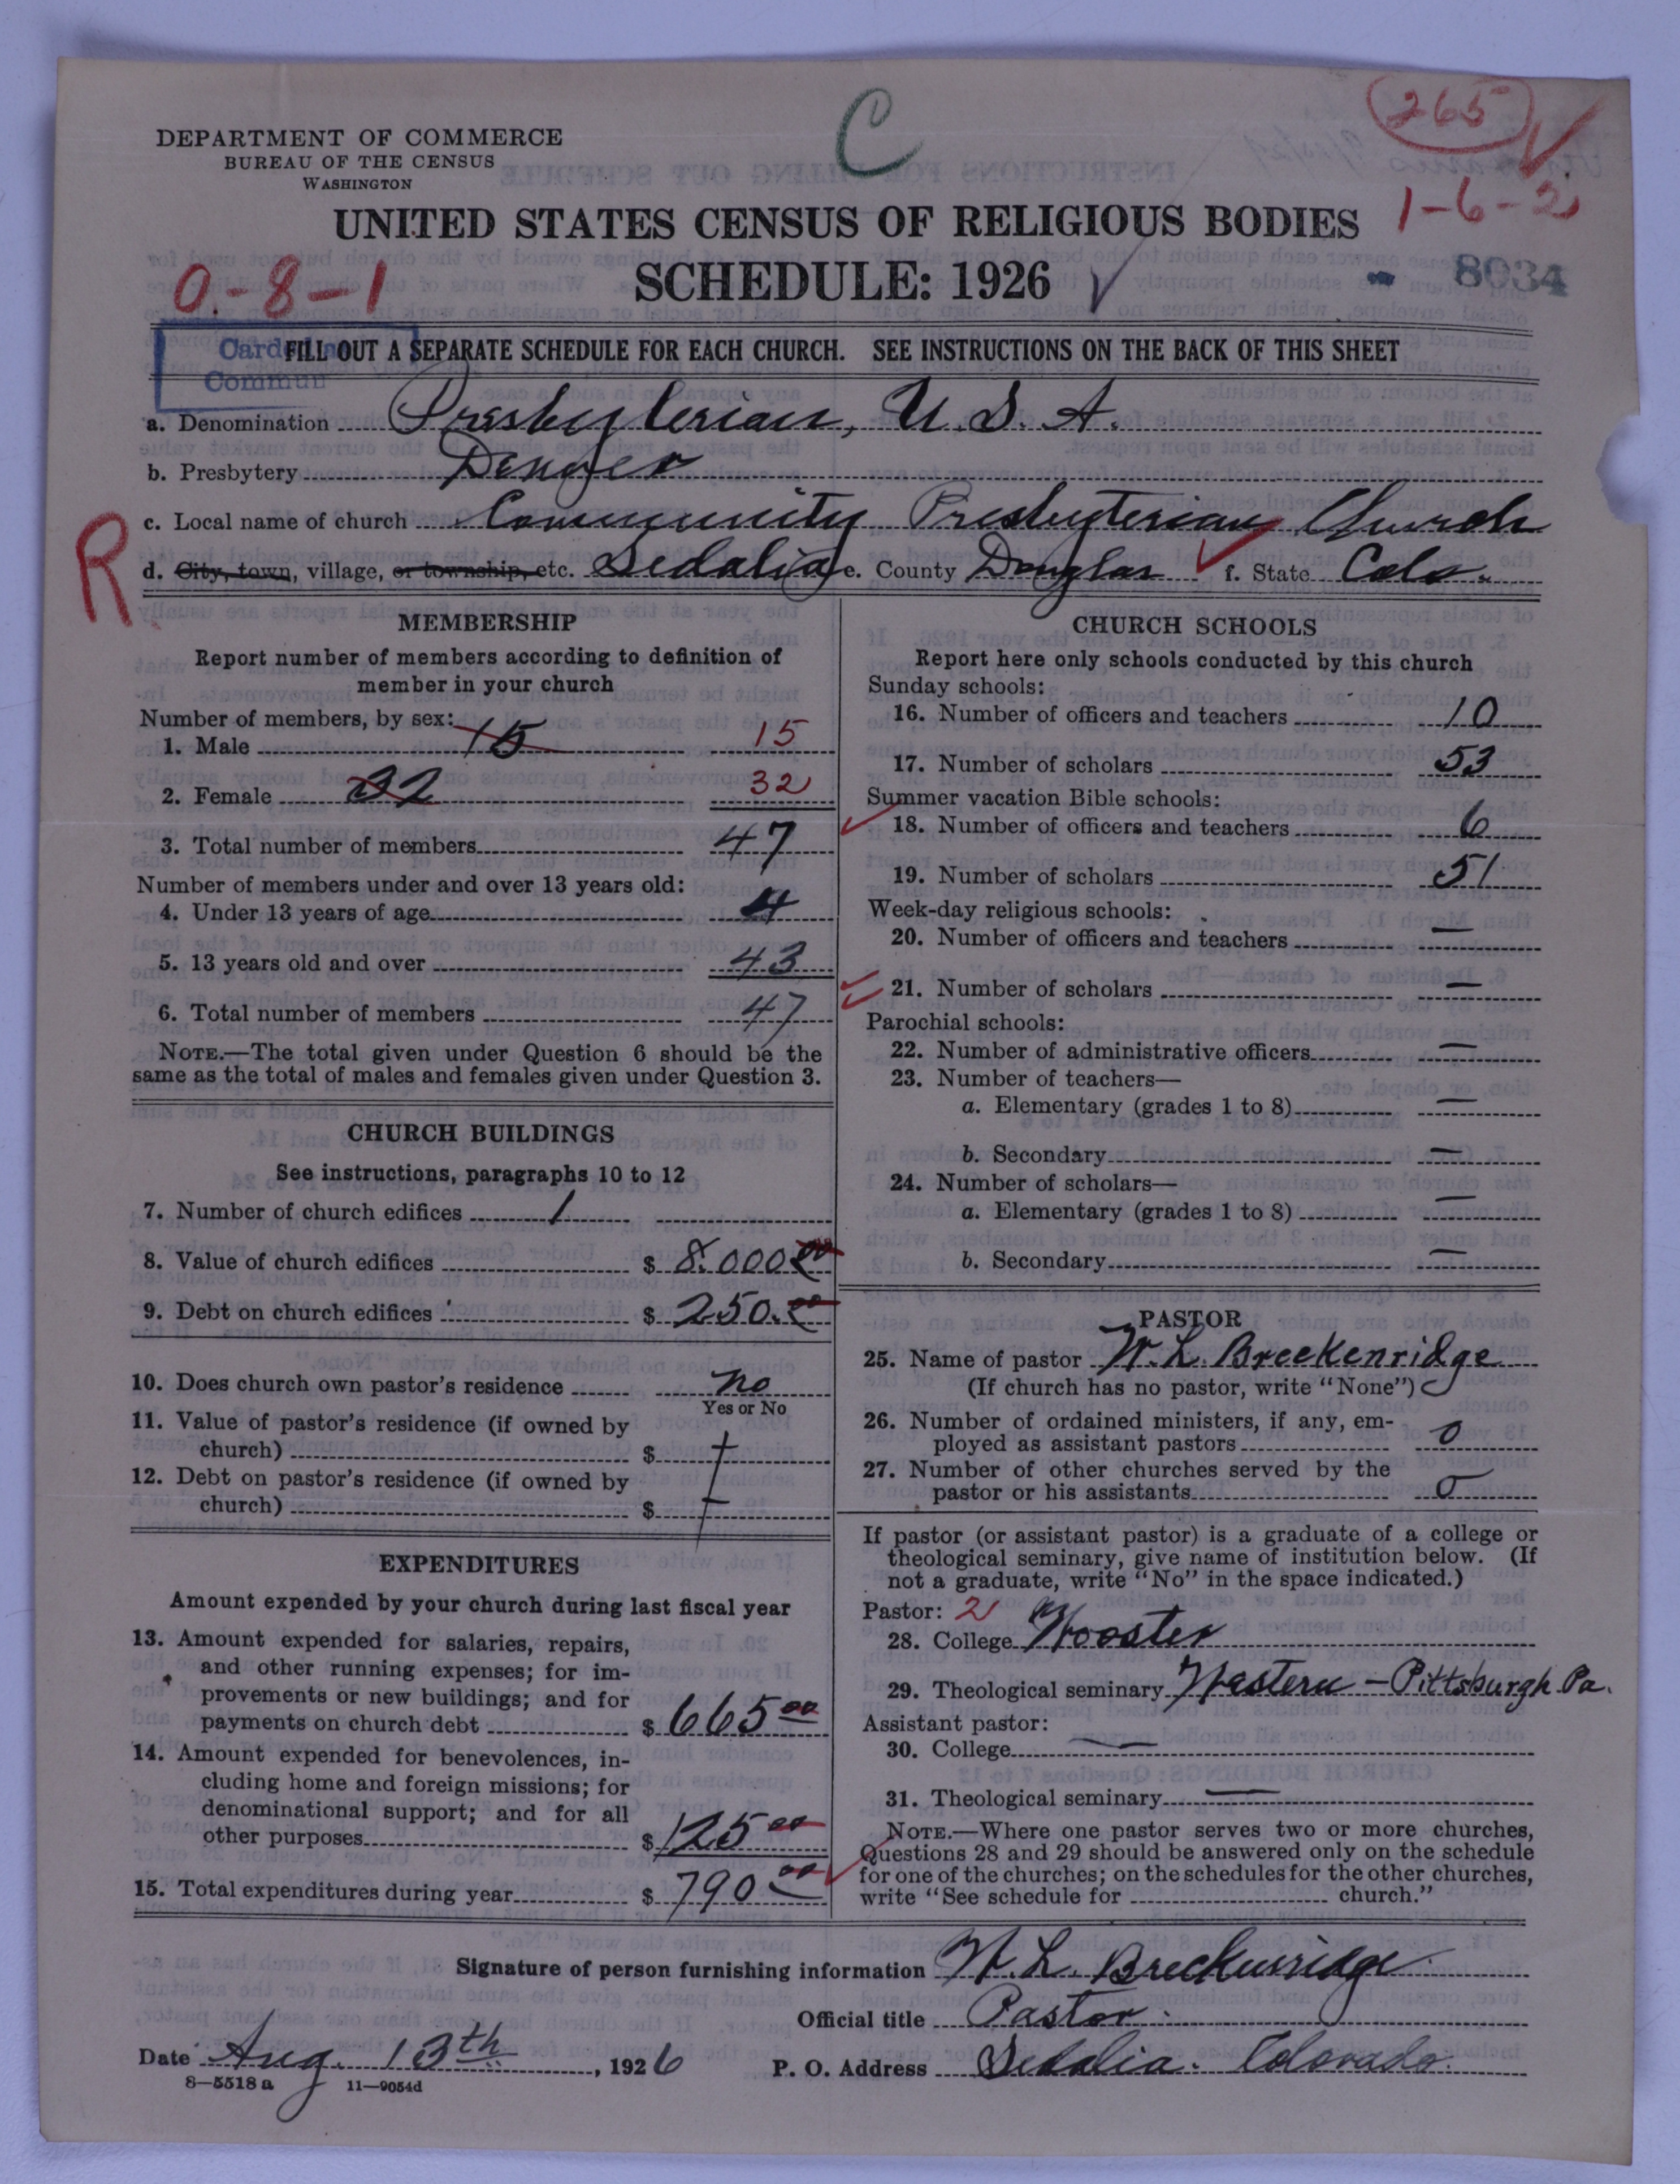 C
265
DEPARTMENT OF COMMERCE
BUREAU OF THE CENSUS
WASHINGTON
UNITED STATES CENSUS OF RELIGIOUS BODIES
1-6-2
SCHEDULE: 1926
8034
0-8-1
Carded
Commun
FILL OUT A SEPARATE SCHEDULE FOR EACH CHURCH. SEE INSTRUCTIONS ON THE BACK OF THIS SHEET
a. Denomination Presbyterian, U.S.A.
b. Presbytery Denver
c. Local name of church Community Presbyterian Church
R
d. City, town, village, or township, etc. Sedalia e. County Douglas f. State Colo.
MEMBERSHIP
Report number of members according to definition of
member in your church
Number of members, by sex:
1. Male 15 15
2. Female 32 32
3. Total number of members 47
Number of members under and over 13 years old:
4. Under 13 years of age 4
5. 13 years old and over 43
6. Total number of members 47
NOTE.—The total given under Question 6 should be the
same as the total of males and females given under Question 3.
CHURCH BUILDINGS
See instructions, paragraphs 10 to 12
7. Number of church edifices 1
8. Value of church edifices $ 8.000 00
9. Debt on church edifices $ 250.00
10. Does church own pastor's residence no
Yes or No
11. Value of pastor's residence (if owned by
church) $
12. Debt on pastor's residence (if owned by
church) $
EXPENDITURES
Amount expended by your church during last fiscal year
13. Amount expended for salaries, repairs,
and other running expenses; for im-
provements or new buildings; and for
payments on church debt $ 665 00
14. Amount expended for benevolences, in-
cluding home and foreign missions; for
denominational support; and for all
other purposes $ 125 00
15. Total expenditures during year $ 790 00
CHURCH SCHOOLS
Report here only schools conducted by this church
Sunday schools:
16. Number of officers and teachers 10
17. Number of scholars 53
Summer vacation Bible schools:
18. Number of officers and teachers 6
19. Number of scholars 51
Week-day religious schools:
20. Number of officers and teachers —
21. Number of scholars —
Parochial schools:
22. Number of administrative officers —
23. Number of teachers—
a. Elementary (grades 1 to 8) —
b. Secondary —
24. Number of scholars—
a. Elementary (grades 1 to 8) —
b. Secondary —
PASTOR
25. Name of pastor W. L. Breckenridge
(If church has no pastor, write "None")
26. Number of ordained ministers, if any, em-
ployed as assistant pastors 0
27. Number of other churches served by the
pastor or his assistants 0
If pastor (or assistant pastor) is a graduate of a college or
theological seminary, give name of institution below. (If
not a graduate, write "No" in the space indicated.)
Pastor: 2
28. College Wooster
29. Theological seminary Western – Pittsburgh Pa.
Assistant pastor:
30. College —
31. Theological seminary —
NOTE.—Where one pastor serves two or more churches,
Questions 28 and 29 should be answered only on the schedule
for one of the churches; on the schedules for the other churches,
write "See schedule for church."
Signature of person furnishing information W. L. Breckenridge
Official title Pastor
Date Aug. 13th, 1926 P. O. Address Sedalia. Colorado.
8—5518 a 11—9054d